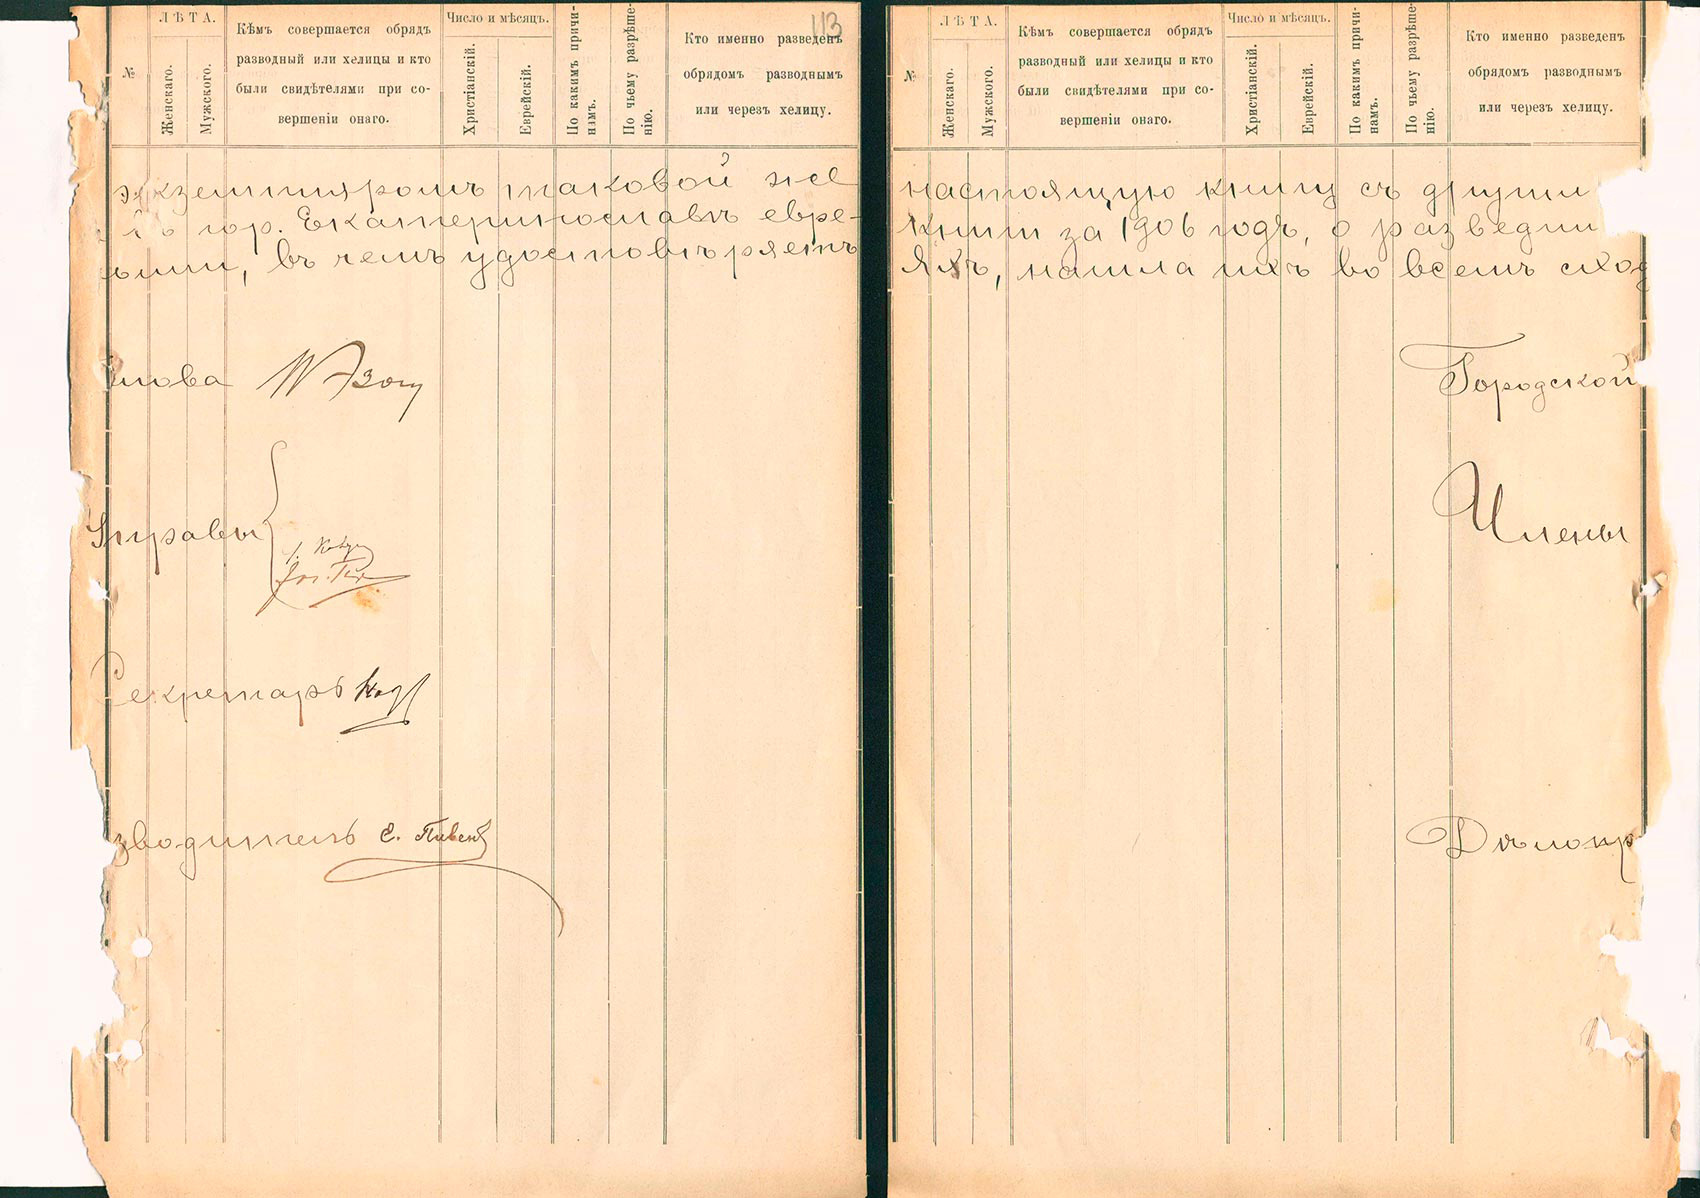 113
№
ЛѢТА.
Женскаго.
Мужского.
Кѣмъ совершается обрядъ
разводный или хелицы и кто
были свидѣтелями при со-
вершеніи онаго.
Число и мѣсяцъ.
Христіанскій.
Еврейскій.
По какимъ причи-
намъ.
По чьему разрѣше-
нію.
Кто именно разведенъ
обрядомъ разводнымъ
или черезъ хелицу.
экземпляромъ таковой же
гор. Екатеринославъ евре-
, въ чемъ удостовѣряетъ
лова
Управы
Секретарь
зводитель С. Пивень
№
ЛѢТА.
Женскаго.
Мужского.
Кѣмъ совершается обрядъ
разводный или хелицы и кто
были свидѣтелями при со-
вершеніи онаго.
Число и мѣсяцъ.
Христіанскій.
Еврейскій.
По какимъ причи-
намъ.
По чьему разрѣше-
нію.
Кто именно разведенъ
обрядомъ разводнымъ
или черезъ хелицу.
настоящую книгу съ другим
книги за 1906 годъ, о разведши
яхъ, нашла ихъ во всемъ сход
Городской
Члены
Дѣлопр